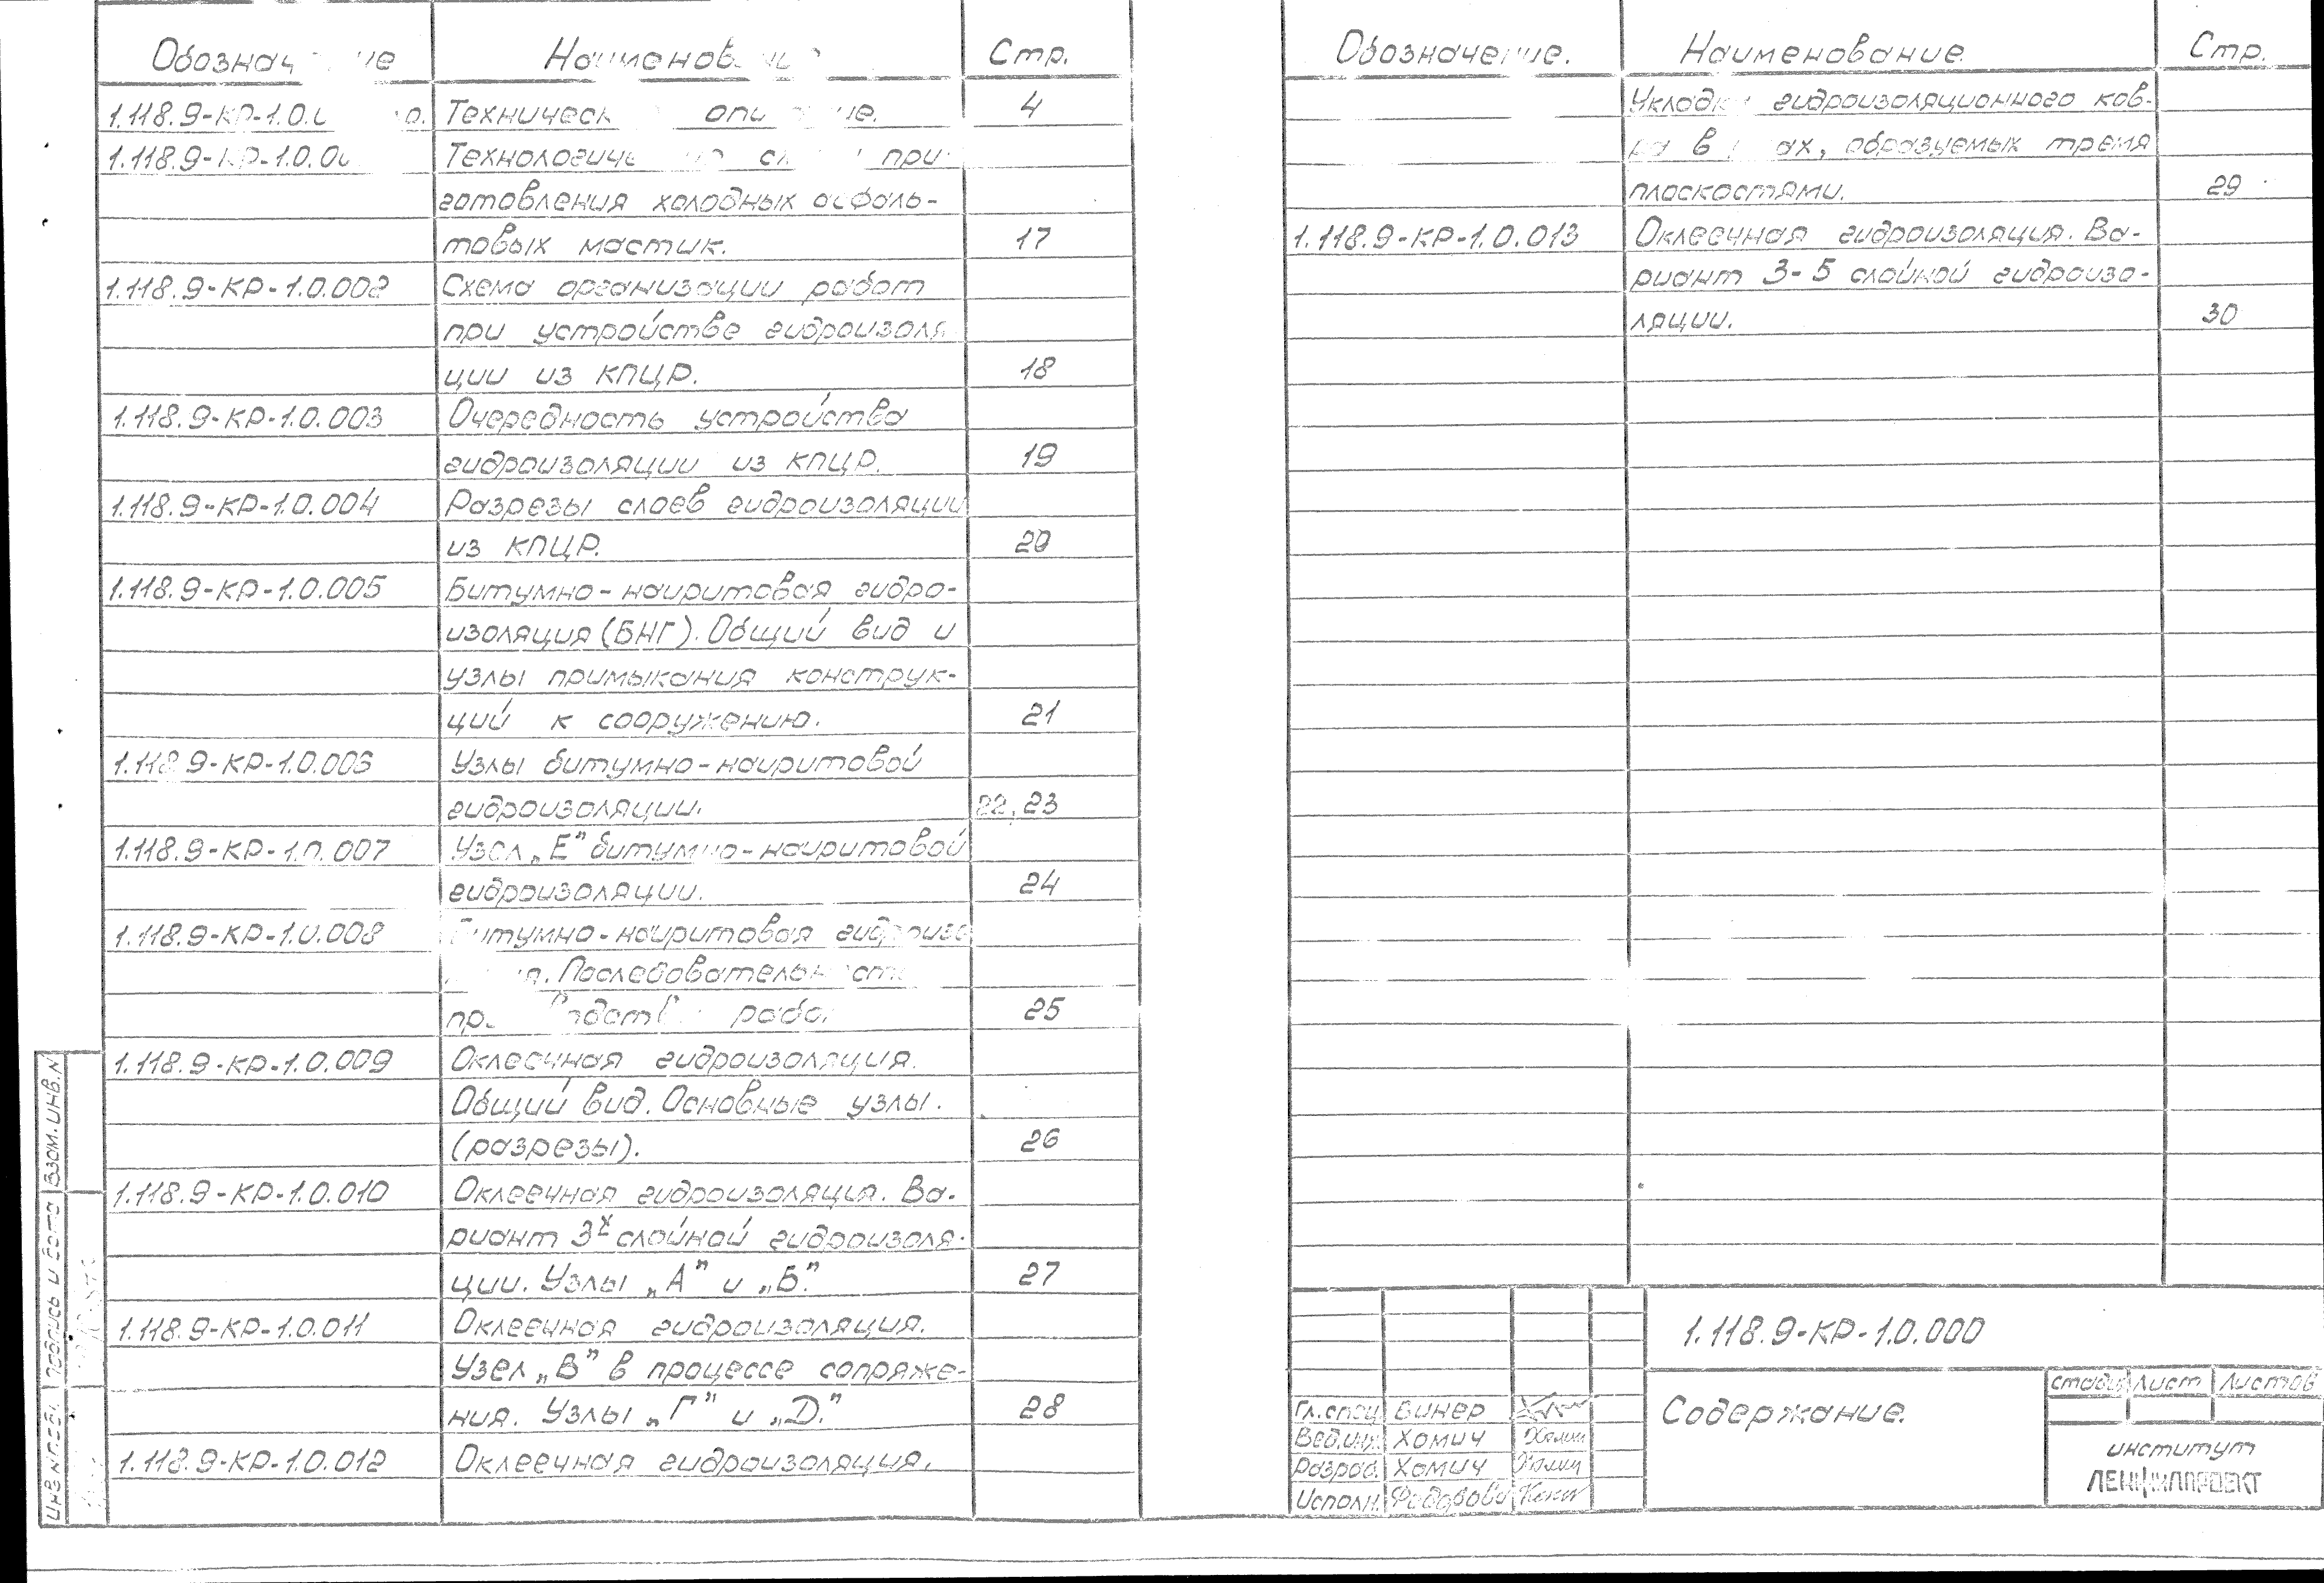 Обозначение Наименование Стр.
1.118.9-КР-1.0.0 о. Техническ опи ие. 4
1.118.9-КР-1.0.00 Технологиче сх при-
готовления холодных асфаль-
товых мастик. 17
1.118.9-КР-1.0.002 Схема организации работ
при устройстве гидроизоля
ции из КПЦР. 18
1.118.9-КР-1.0.003 Очередность устройства
гидроизоляции из КПЦР. 19
1.118.9-КР-1.0.004 Разрезы слоев гидроизоляции
из КПЦР. 20
1.118.9-КР-1.0.005 Битумно-наиритовая гидро-
изоляция (БНГ). Общий вид и
узлы примыкания конструк-
ций к сооружению. 21
1.118.9-КР-1.0.006 Узлы битумно-наиритовой
гидроизоляции. 22,23
1.118.9-КР-1.0.007 Узел „Е" битумно-наиритовой
гидроизоляции. 24
1.118.9-КР-1.0.008 Битумно-наиритовая гидроизо
я. Последовательность
работ 25
1.118.9-КР-1.0.009 Оклеечная гидроизоляция.
Общий вид. Основные узлы.
(разрезы). 26
1.118.9-КР-1.0.010 Оклеечная гидроизоляция. Ва-
риант 3х слойной гидроизоля-
ции. Узлы „А" и „Б". 27
1.118.9-КР-1.0.011 Оклеечная гидроизоляция.
Узел „В" в процессе сопряже-
ния. Узлы „Г" и „Д". 28
1.118.9-КР-1.0.012 Оклеечная гидроизоляция.
Обозначение. Наименование. Стр.
Укладка гидроизоляционного ков-
ра в ах, образуемых тремя
плоскостями. 29
1.118.9-КР-1.0.013 Оклеечная гидроизоляция. Ва-
риант 3-5 слойной гидроизо-
ляции. 30
1.118.9-КР-1.0.000
Содержание.
стадия лист листов
институт
ЛЕНЖИЛПРОЕКТ
Гл.спец. Винер
Вед.инж. Хомич Хомич
Разраб. Хомич Хомич
Исполн. Федорова
Инв.N подл. Подпись и дата Взам.инв.N